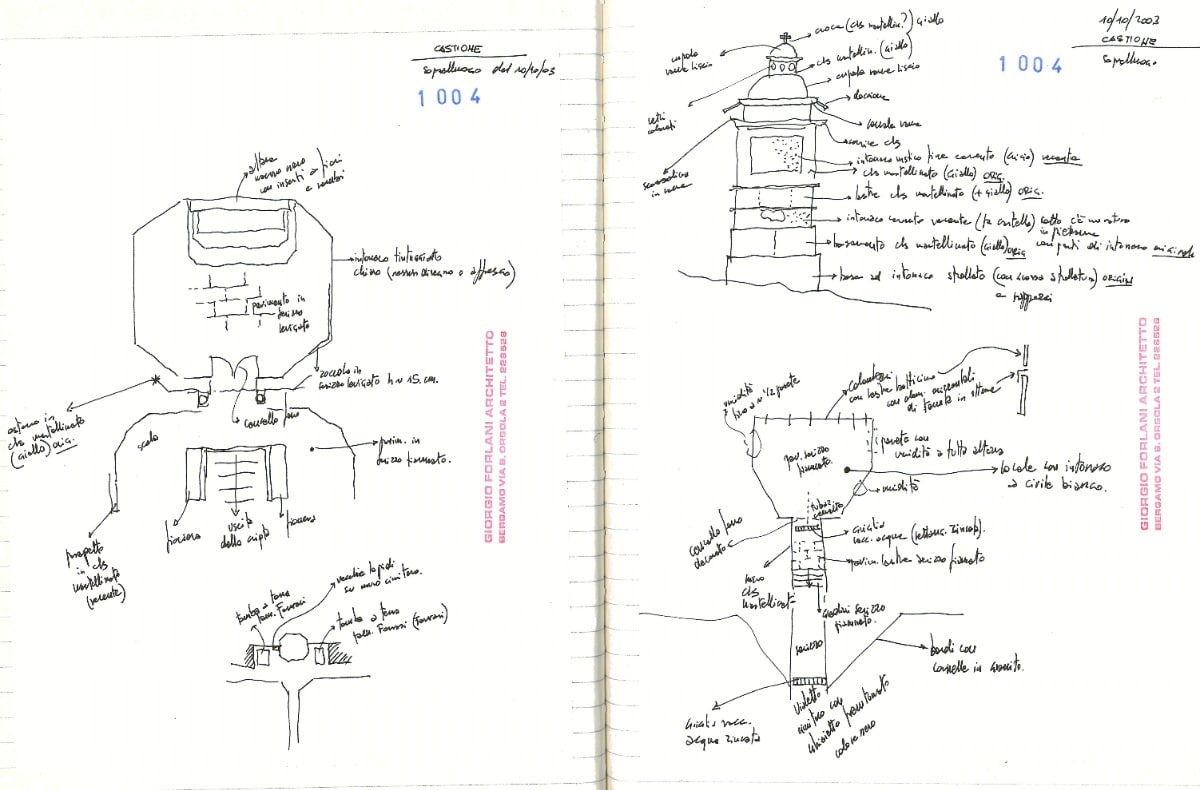 CASTIONE
sopralluogo del 10/10/03
1004
altare
marmo nero
con inserti a fiori
intonaco tinteggiato
chiaro (nessun disegno o affresco)
pavimento in
serizzo
levigato
zoccolo in
serizzo levigato h ~ 15 cm.
cancello ferro
esterno in
cls martellinato
(giallo) orig.
scala
pavim. in
serizzo fiammato.
fioriera
uscita
dalla cripta
fioriera
parapetto
in cls
martellinato
(recente)
vecchie lapidi
su muro cimitero.
tomba a terra
fam.
tomba a terra
fam.
GIORGIO FORLANI ARCHITETTO
BERGAMO VIA S. ORSOLA 2 TEL. 223528
10/10/2003
CASTIONE
sopralluogo
1004
croce (cls martellin.?) giallo
cupola
rame liscio
cls martellin. (giallo)
cupola rame liscio
vetri
colorati
doccione
canale rame
cornice cls
scossalina
in rame
intonaco rustico fine cemento (grigio) recente
cls martellinato (giallo) orig.
lastre cls martellinato (+ giallo) orig.
intonaco cemento recente
sotto c'è muratura
in pietrame
con punti di intonaco originale
basamento cls martellinato (giallo) orig
base ad intonaco strollato
e rappezzi
umidità
fino a ~ 1/2 parete
colombari
con lastre botticino
con elem. orizzontali
di facciata in ottone
pav. serizzo
fiammato.
parete con
umidità a tutta altezza
locale con intonaco
a civile bianco.
umidità
cancello ferro
griglia
racc. acque (lettura zincata)
pavim. lastre serizzo fiammato
muro
cls
martellinato
gradini serizzo
fiammato.
serizzo
bordi con
copertine in granito.
griglia racc.
acqua zincata
vialetto
cimitero con
colore nero
GIORGIO FORLANI ARCHITETTO
BERGAMO VIA S. ORSOLA 2 TEL. 223528